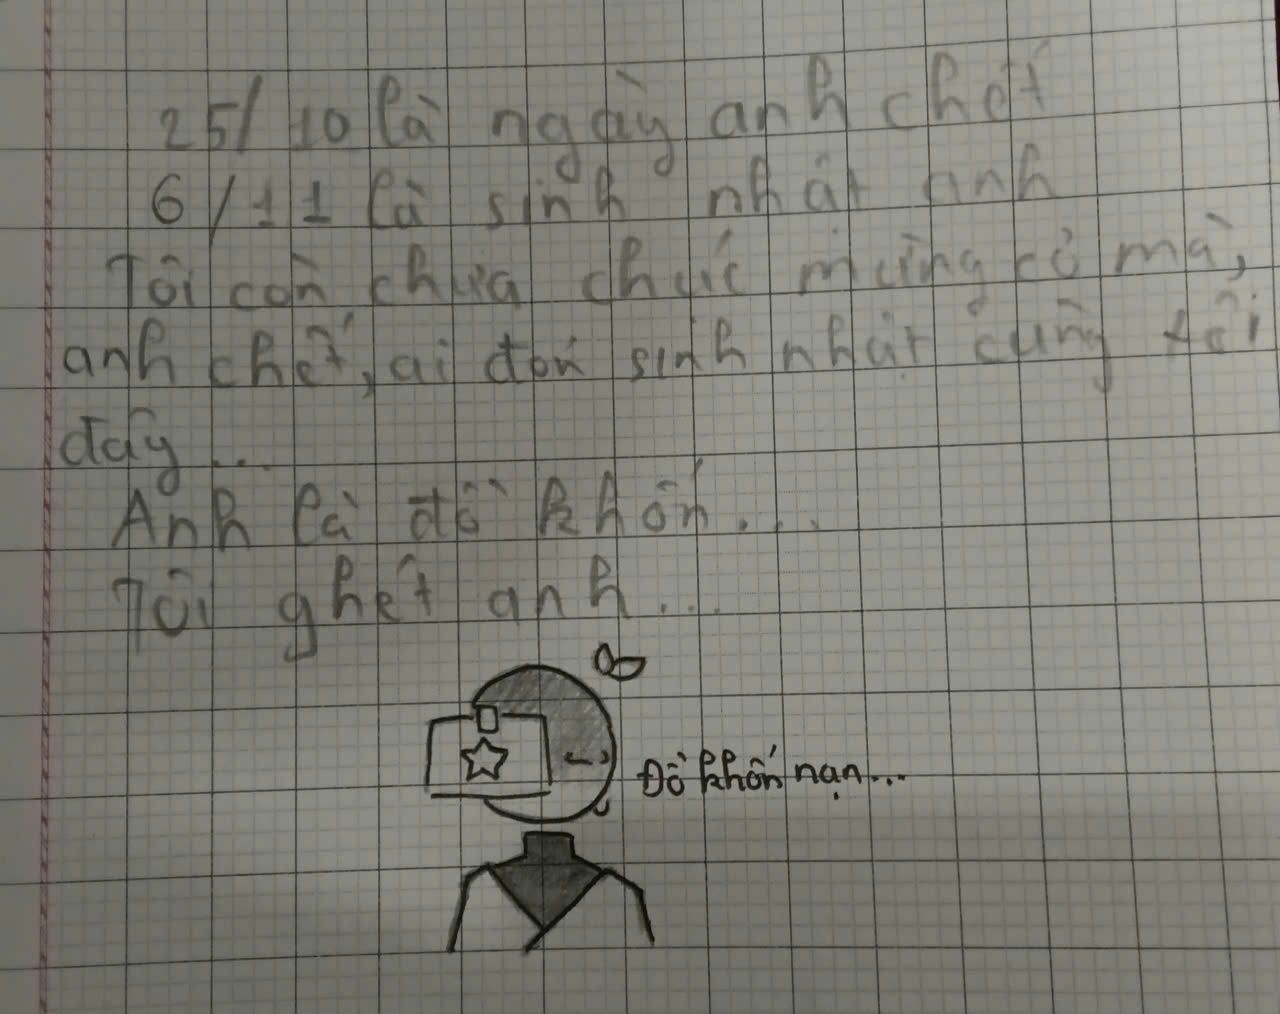 25/10 là ngày anh chết
6/11 là sinh nhật anh
Tôi còn chưa chúc mừng cơ mà,
anh chết, ai đón sinh nhật cùng tôi
đây...
Anh là đồ khốn...
Tôi ghét anh...
Đồ khốn nạn...